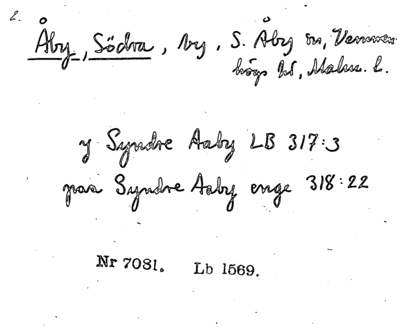 2.
Åby, Södra, by, S. Åby sn, Vemmen-
högs hd, Malm. l.
y Syndre Aaby LB 317:3
paa Syndre Aaby enge 318:22
Nr 7081. Lb 1569.